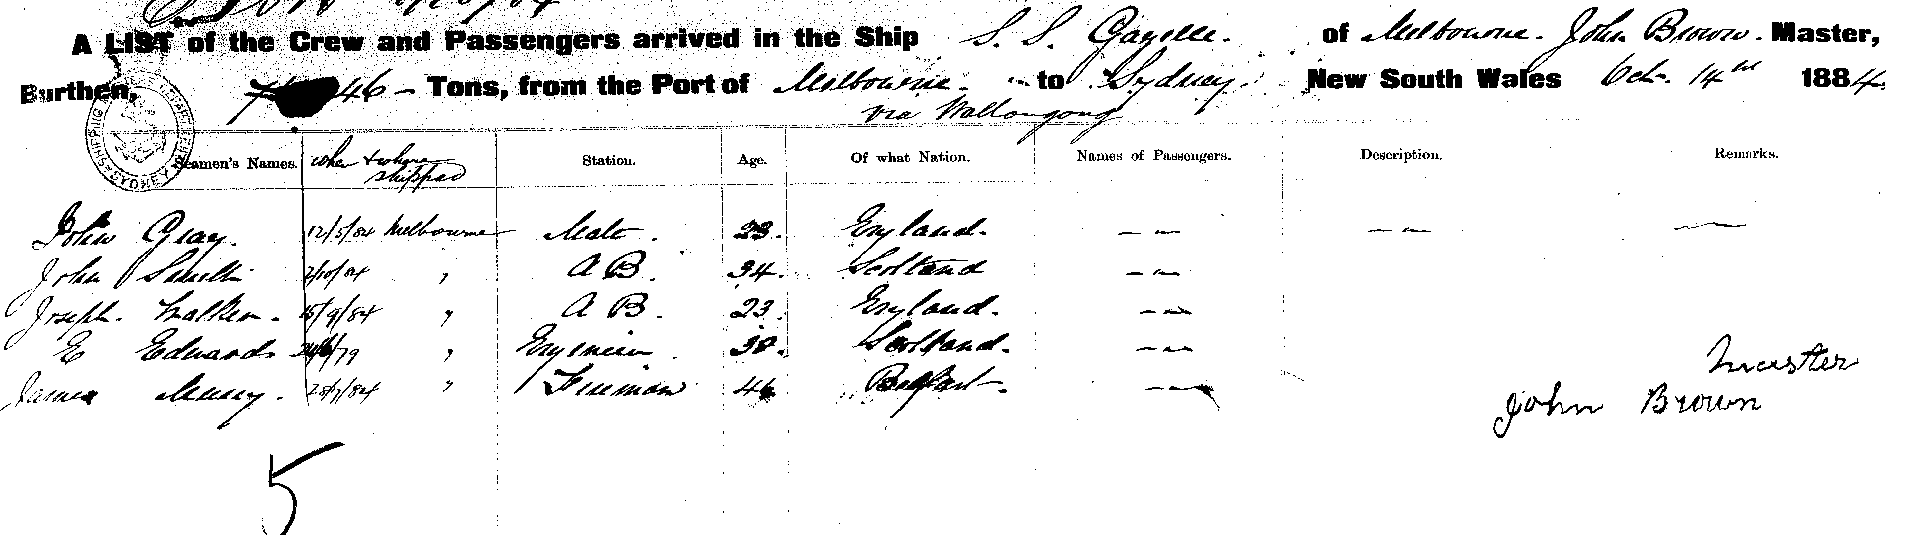 A LIST of the Crew and Passengers arrived in the Ship S. S. Gazelle. of Melbourne. John Brown. Master,
Burthen, 46 - Tons, from the Port of Melbourne - to Sydney. New South Wales Oct. 14th 1884.
via Wollongong
SHIPPING SYDNEY
Seamen's Names. when & where shipped Station. Age. Of what Nation. Names of Passengers. Description. Remarks.
John Gray. 12/5/84 Melbourne Mate. 23. England. — — — — —
John Smith " A B. 34. Scotland — —
Joseph. Walker. 15/9/84 " A B. 23. England. — —
E Edwards /79 " Engineer. 38. Scotland. — —
James 28/7/84 " Fireman 46 Belfast. — —
Master
John Brown
5